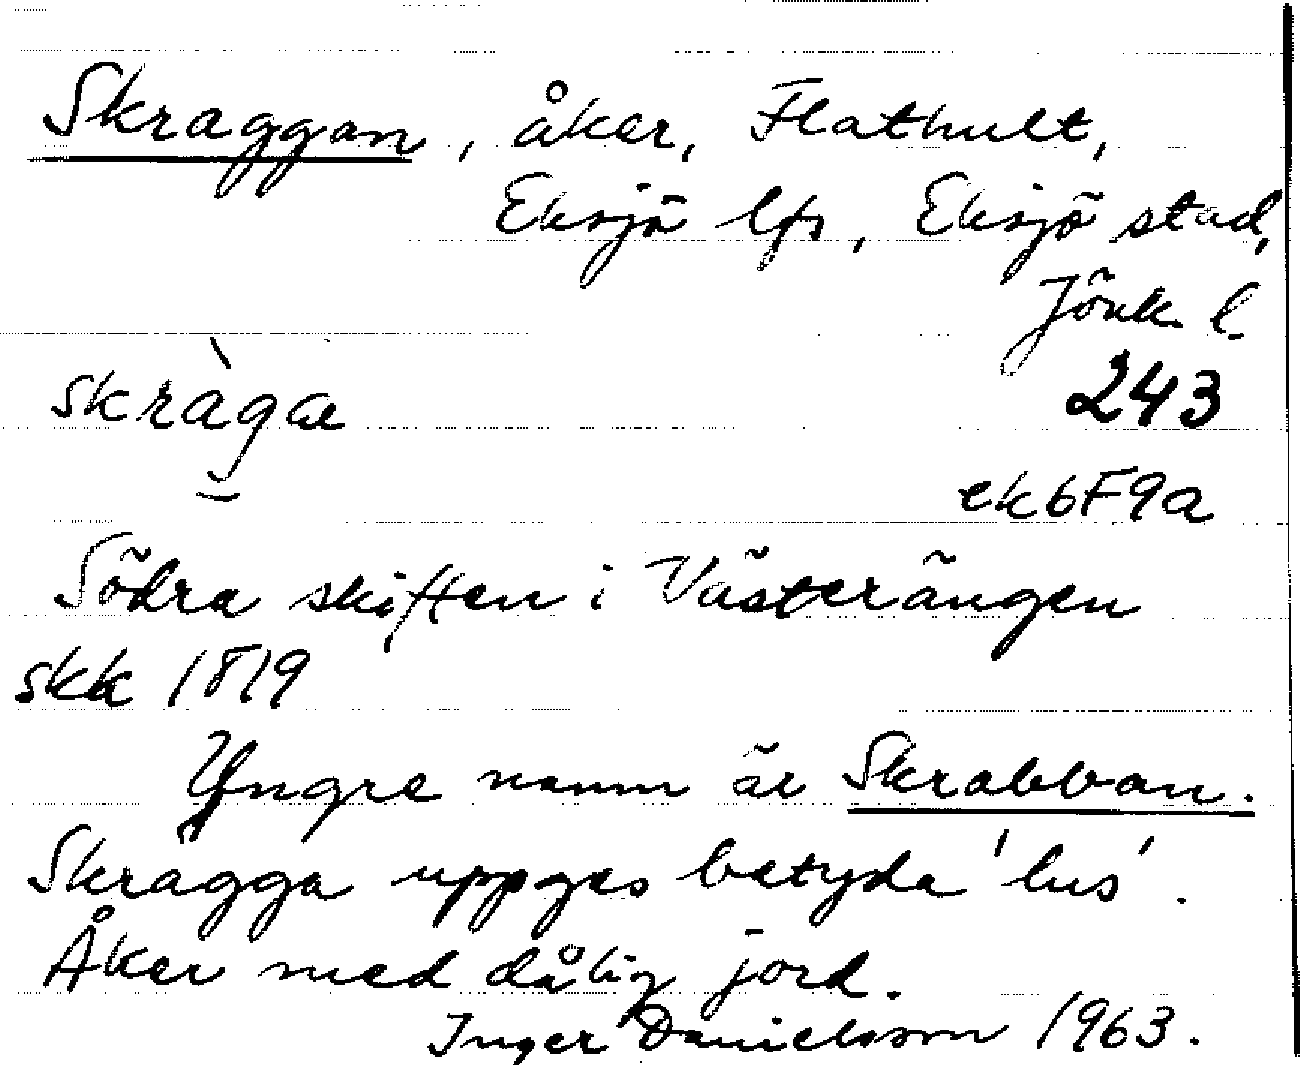 Skraggan, åker, Flathult,
Eksjö lfs, Eksjö stad,
Jönk. l.
skràgæ
243
ek6F9a
Södra skiften i Västerängen
skk 1819
Yngre namn är Skrabban.
Skragga uppges betyda 'lus'.
Åker med dålig jord.
Inger Danielsson 1963.